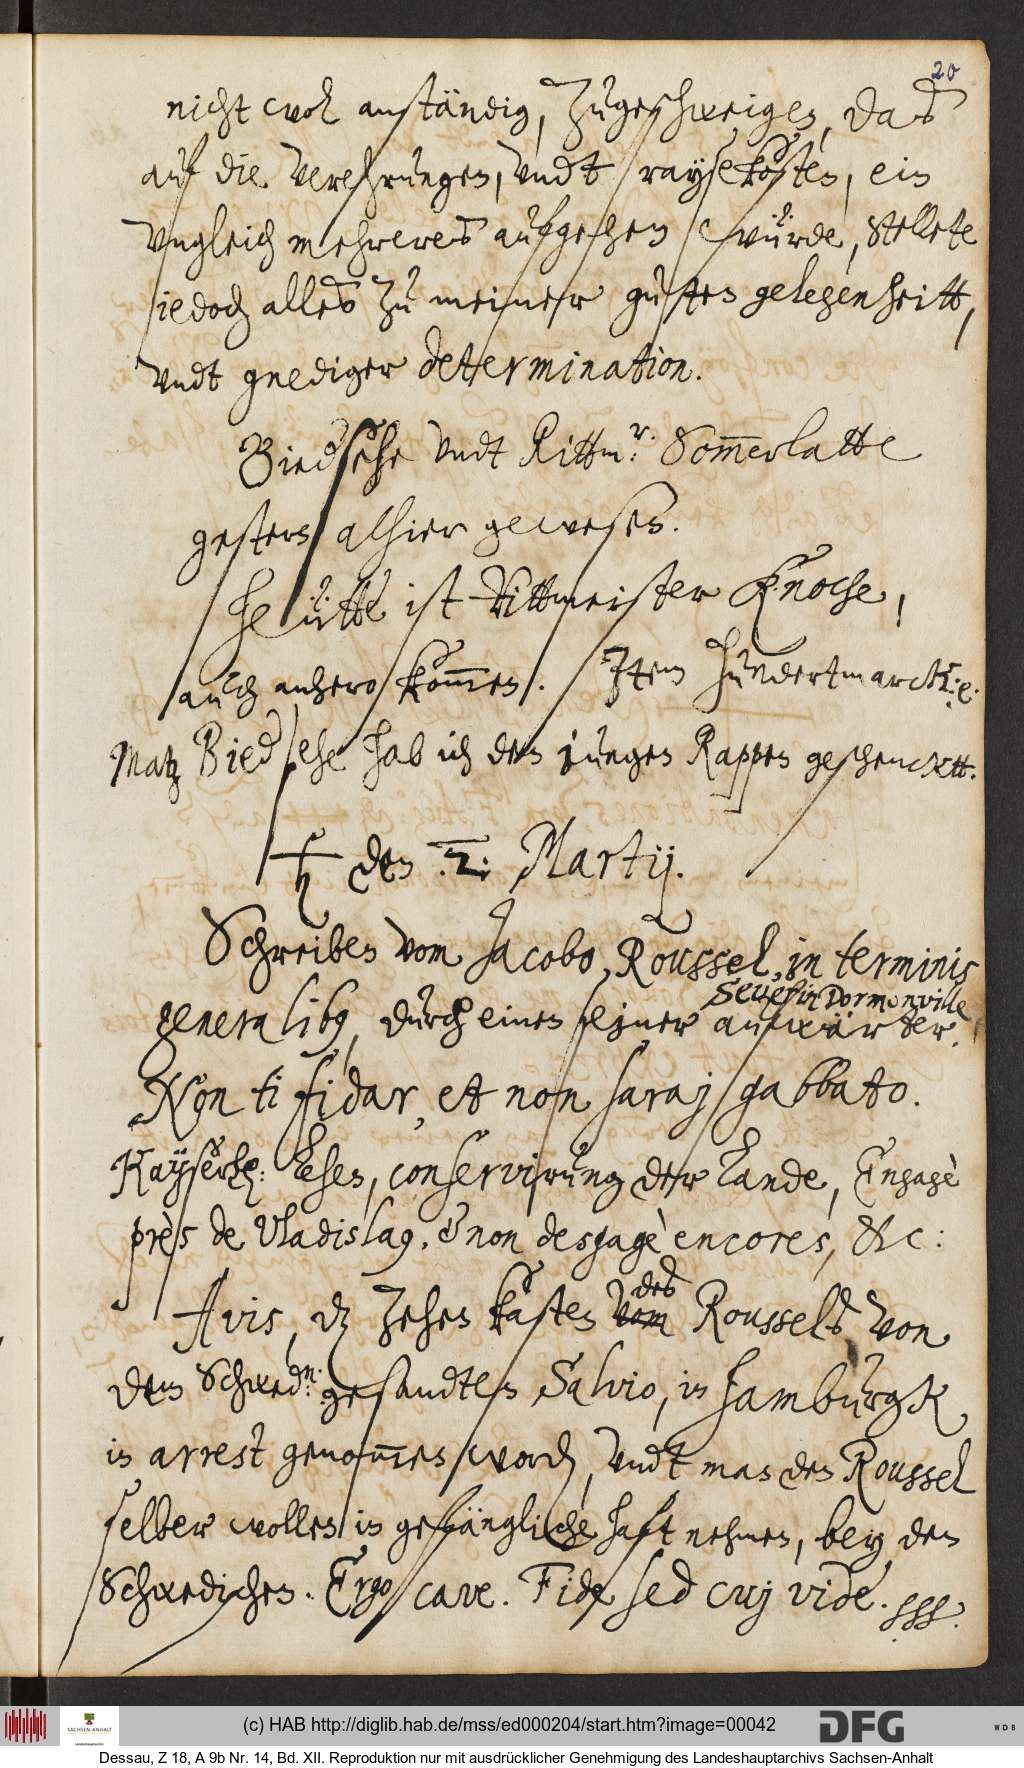 20
nicht wol anständig, zugeschweigen, das
auf die verehrungen, undt raysekosten, ein
ungleich mehreres aufgehen würde, stellete
iedoch alles zu meiner guhten gelegenheitt,
undt gnediger determination.
Biedsehe undt Rittmr: Som̄erlatte
gestern alhier gewesen.
Heütte ist Rittmeister Knoche,
auch anhero kom̄en. Item hundertmarck
Matz Biedsehe hab ich den jungen Rappen geschenckt.
♄ den 2: Martij.
Schreiben vom Jacobo, Roussel, in terminis
generalibus, durch einen seiner aufwärter.
Severin Dormonville
Non ti fidar, et non saraj gabbato.
Kayserl: Lehen, conservirung der Lande, Engagè
près de Uladislaus. & non desgagè encores, &c:
Avis, dz zehen kasten vom des Roussels von
dem Schwedn: gesandten Salvio, in Hamburgk
in arrest genom̄en word(en), undt man den Roussel
selber wollen in gefängliche haft nehmen, bey den
Schwedischen. Ergo cave. Fide sed cuj vide. sss.
(c) HAB http://diglib.hab.de/mss/ed000204/start.htm?image=00042
SACHSEN-ANHALT
DFG
WDB
Dessau, Z 18, A 9b Nr. 14, Bd. XII. Reproduktion nur mit ausdrücklicher Genehmigung des Landeshauptarchivs Sachsen-Anhalt